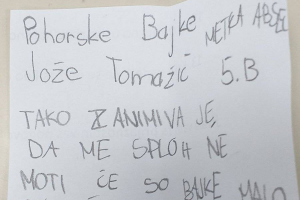 Pohorske Bajke METKA
Jože Tomažič 5.B
TAKO ZANIMIVA JE,
DA ME SPLOH NE
MOTI ČE SO BAJKE MALO